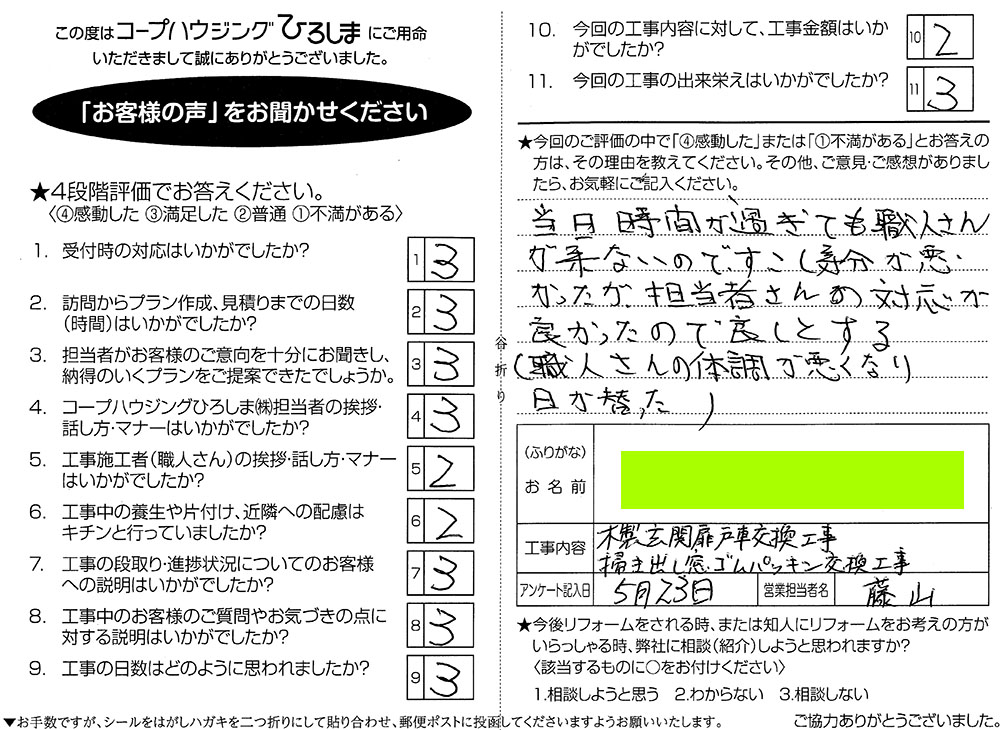 この度はコープハウジングひろしまにご用命
いただきまして誠にありがとうございました。
「お客様の声」をお聞かせください
★4段階評価でお答えください。
〈④感動した ③満足した ②普通 ①不満がある〉
1. 受付時の対応はいかがでしたか? 1 3
2. 訪問からプラン作成、見積りまでの日数
(時間)はいかがでしたか? 2 3
3. 担当者がお客様のご意向を十分にお聞きし、
納得のいくプランをご提案できたでしょうか。 3 3
4. コープハウジングひろしま㈱担当者の挨拶・
話し方・マナーはいかがでしたか? 4 3
5. 工事施工者(職人さん)の挨拶・話し方・マナー
はいかがでしたか? 5 2
6. 工事中の養生や片付け、近隣への配慮は
キチンと行っていましたか? 6 2
7. 工事の段取り・進捗状況についてのお客様
への説明はいかがでしたか? 7 3
8. 工事中のお客様のご質問やお気づきの点に
対する説明はいかがでしたか? 8 3
9. 工事の日数はどのように思われましたか? 9 3
谷折り
10. 今回の工事内容に対して、工事金額はいか
がでしたか? 10 2
11. 今回の工事の出来栄えはいかがでしたか? 11 3
★今回のご評価の中で「④感動した」または「①不満がある」とお答えの
方は、その理由を教えてください。その他、ご意見・ご感想がありまし
たら、お気軽にご記入ください。
当日時間が過ぎても職人さん
が来ないのですこし気分が悪
かったが担当者さんの対応が
良かったので良しとする
(職人さんの体調が悪くなり
日が替った)
(ふりがな)
お名前
工事内容 木製玄関扉戸車交換工事
掃き出し窓・ゴムパッキン交換工事
アンケート記入日 5月23日 営業担当者名 藤山
★今後リフォームをされる時、または知人にリフォームをお考えの方が
いらっしゃる時、弊社に相談(紹介)しようと思われますか?
〈該当するものに○をお付けください〉
1.相談しようと思う 2.わからない 3.相談しない
▼お手数ですが、シールをはがしハガキを二つ折りにして貼り合わせ、郵便ポストに投函してくださいますようお願いいたします。
ご協力ありがとうございました。